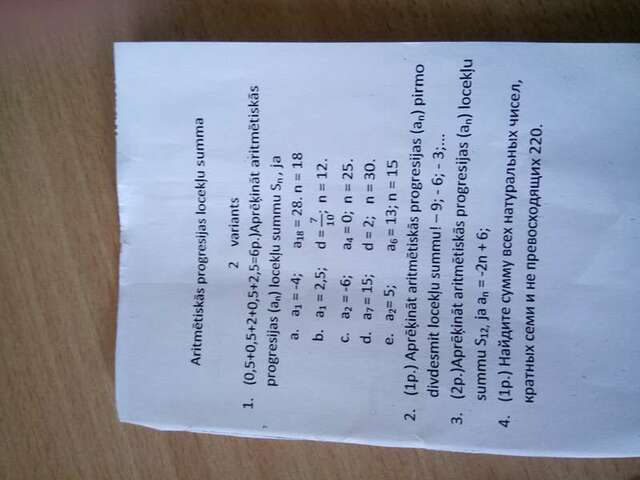 Aritmētiskās progresijas locekļu summa
2 variants
1. (0,5+0,5+2+0,5+2,5=6p.)Aprēķināt aritmētiskās
progresijas (aₙ) locekļu summu Sₙ, ja
a. a₁ = -4; a₁₈ = 28. n = 18
b. a₁ = 2,5; d = 7/10; n = 12.
c. a₂ = -6; a₄ = 0; n = 25.
d. a₇ = 15; d = 2; n = 30.
e. a₂= 5; a₆ = 13; n = 15
2. (1p.) Aprēķināt aritmētiskās progresijas (aₙ) pirmo
divdesmit locekļu summu! – 9; - 6; - 3;...
3. (2p.)Aprēķināt aritmētiskās progresijas (aₙ) locekļu
summu S₁₂, ja aₙ = -2n + 6;
4. (1p.) Найдите сумму всех натуральных чисел,
кратных семи и не превосходящих 220.